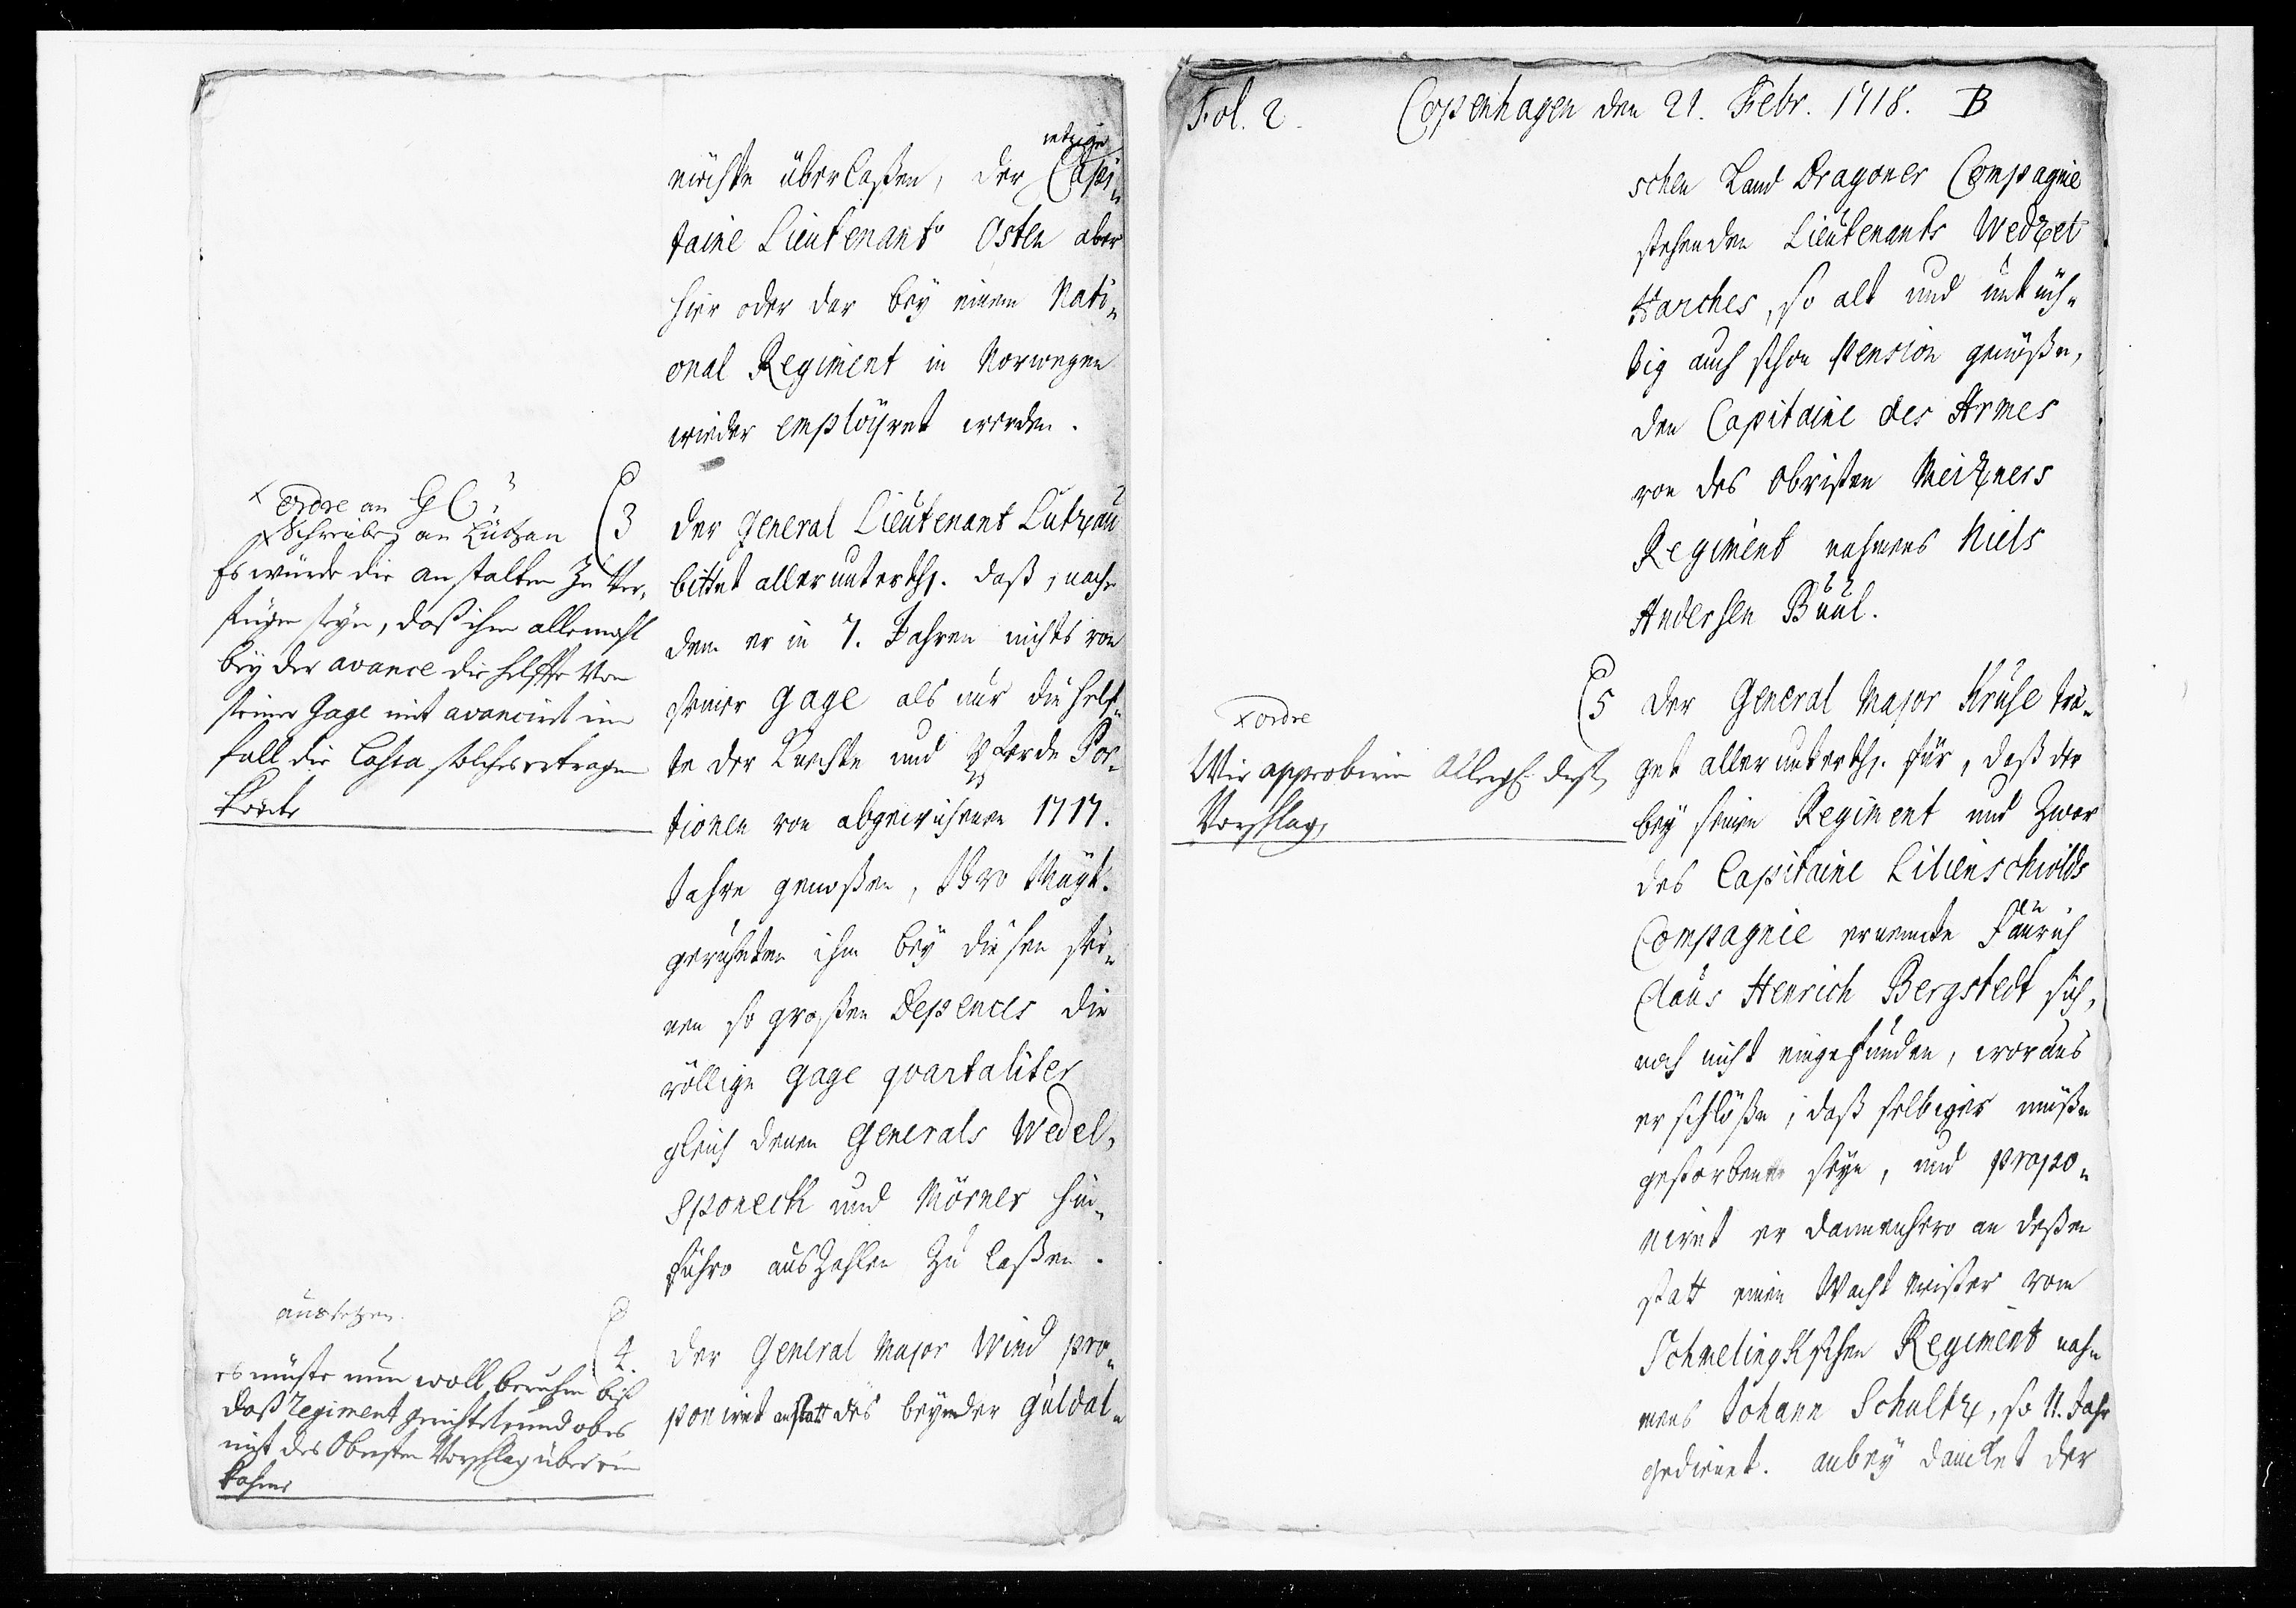 möchte überlaßen, der jetzige Capi„
taine Lieutenant v Osten aber
hier oder dar bey einem Nati„
onal Regiment in Norwegen
wieder employret werden.
x ordre an GC
x Schreiben an Lützau
Es würde die anstalten zu ver„
fügen seyn, daß ihm allemahl
bey der avance die helffte von
seiner Gage mit avancirt im
fall die Cassa solches ertragen
könte
3
Der General Lieutenant Lützau
bittet allerunterthg. daß, nach„
dem er in 7. Jahren nichts von
seiner gage als nur die helf„
te der Knechte und Pferde Por„
tionen von abgewichenen 1717.
Jahre genoßen, Ihro Mayt.
geruheten ihm bey diesen sei„
nen so großen Depences die
völlige gage quartaliter
gleich denen Generals Wedel,
Sponeck und Mörner hin„
führo auszahlen zu laßen.
aussetzen.
es müste nun woll beruhen biß
daß Regiment gerichtet und obes
mit des Obersten Vorschlag überein
kohme
4.
Der General Major Wind pro„
poniret anstatt des beyn der Guldal„
Fol. 2.
Copenhagen den 21. Febr. 1718. B
schen Land Dragoner Compagnie
stehenden Lieutenants Wedzet
Harches, so alt und untüch„
tig auch schon Pension genöße,
den Capitaine des Armes
von des Obristen Meizners
Regiment nahmens Niels
Andersen Buul.
x ordre
Wir approbiren Allergst. deß
Vorschlag,
5
Der General Major Kruse trä„
get allerunterthg. für, daß der
bey seinem Regiment und zwar
des Capitaine Lilienschiolds
Compagnie ernennte Fänrich
Claus Henrich Bergstedt sich
noch nicht eingefunden, woraus
er schlöße, daß selbiger müße
gestorben seyn, und propo„
niret er dannenhero an deßen
statt einen Wachtmeister vom
Schmelingkschen Regiment nah„
mens Johann Schultz, so 11. Jahr
gedienet. anbey dancket der